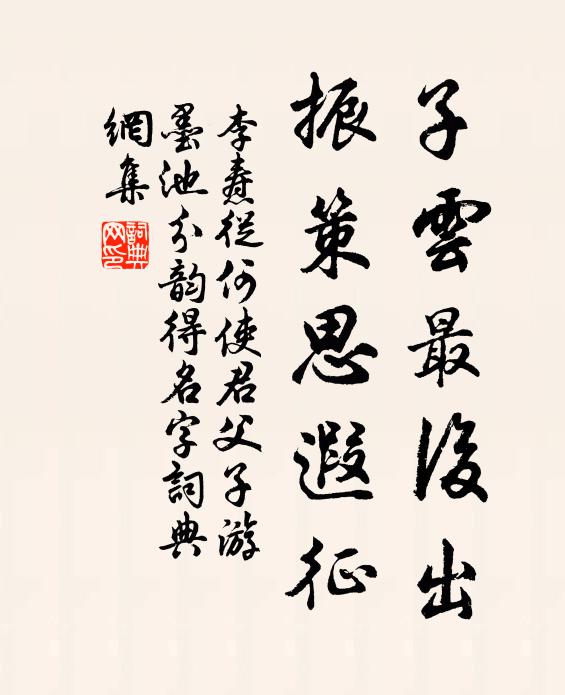 子雲最後出
振策思遐征
李燾從何使君父子游
墨池分韵得名字詞典
網集
詞典网印